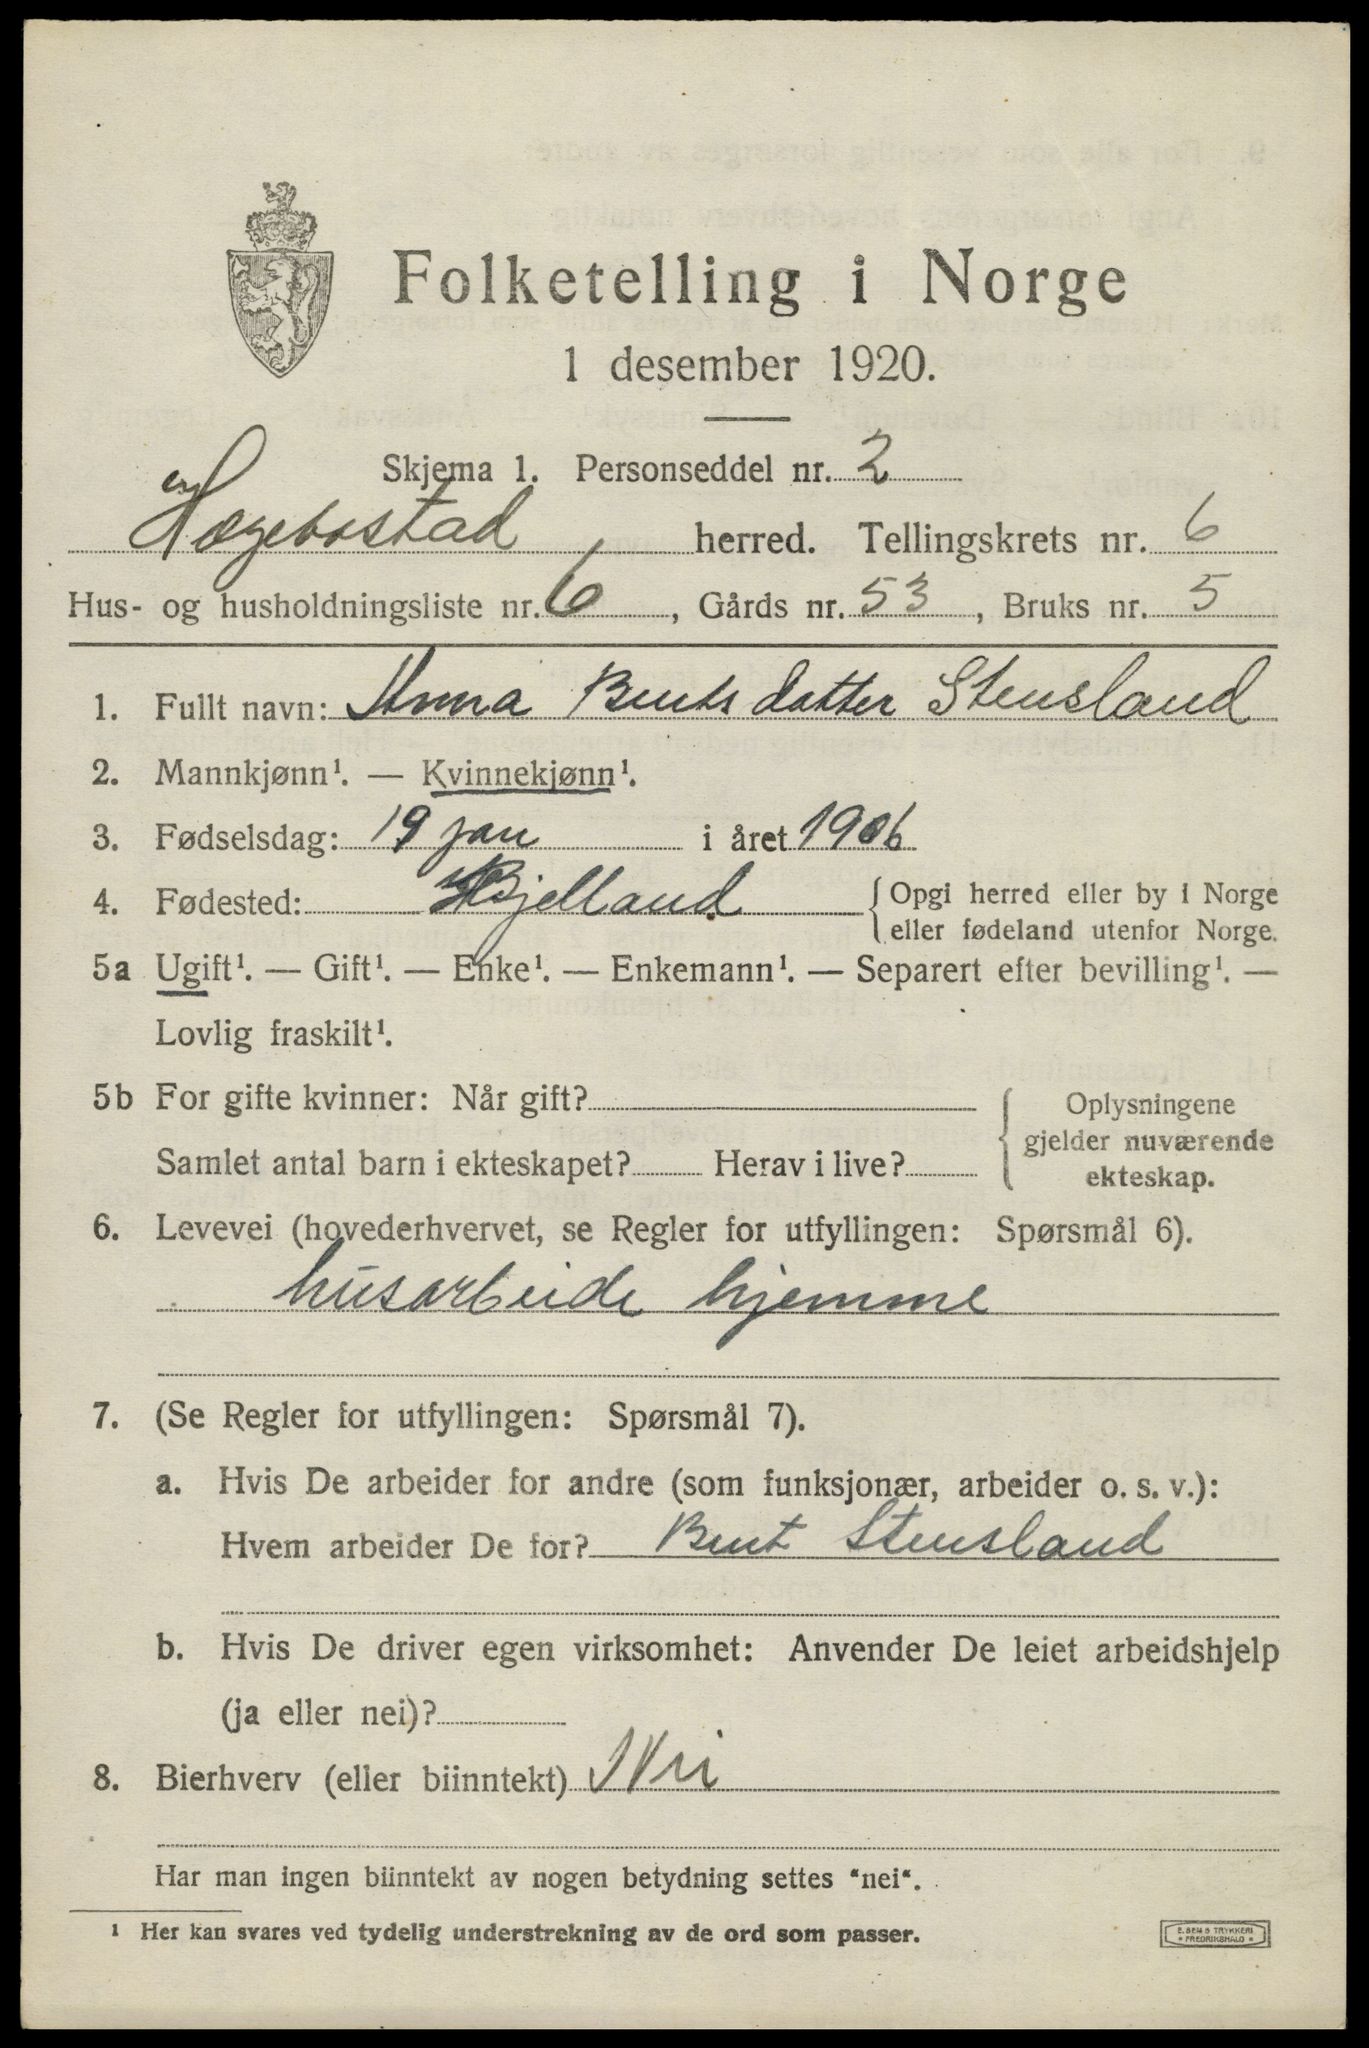 Folketelling i Norge
1 desember 1920.
Skjema 1. Personseddel nr. 2
Hægebostad herred. Tellingskrets nr. 6
Hus- og husholdningsliste nr. 6, Gårds nr. 53, Bruks nr. 5
1. Fullt navn: Anna Bentsdatter Stensland
2. Mannkjønn¹. — Kvinnekjønn¹.
3. Fødselsdag: 19 jan i året 1906
4. Fødested: Bjelland { Opgi herred eller by i Norge
eller fødeland utenfor Norge.
5a Ugift¹. — Gift¹. — Enke¹. — Enkemann¹. — Separert efter bevilling¹. —
Lovlig fraskilt¹.
5b For gifte kvinner: Når gift?
Samlet antal barn i ekteskapet? Herav i live?
{ Oplysningene
gjelder nuværende
ekteskap.
6. Levevei (hovederhvervet, se Regler for utfyllingen: Spørsmål 6).
husarbeide hjemme
7. (Se Regler for utfyllingen: Spørsmål 7).
a. Hvis De arbeider for andre (som funksjonær, arbeider o. s. v.):
Hvem arbeider De for? Bent Stensland
b. Hvis De driver egen virksomhet: Anvender De leiet arbeidshjelp
(ja eller nei)?
8. Bierhverv (eller biinntekt) Nei
Har man ingen biinntekt av nogen betydning settes "nei".
¹ Her kan svares ved tydelig understrekning av de ord som passer.
E. SEM'S TRYKKERI
* FREDRIKSHALD *